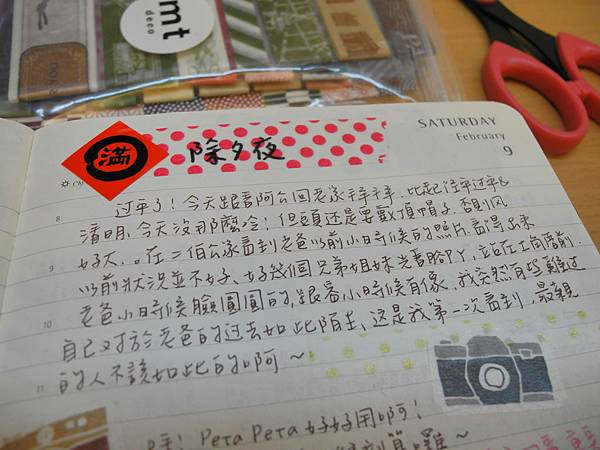 mt
deco
SATURDAY
February
9
滿
除夕夜
8
過年了！今天跟著阿公回老家拜拜，比起往年过年&
清明，今天沒那麼冷！但頭還是要戴頂帽子，否則風
好大。。在二伯公家看到老爸以前小时候的照片，看得出來
9
以前狀況並不好、好幾個兄弟姐妹光著腳丫，站在工廠前，
老爸小時候臉圓圓的，跟客小時候有像，我突然有些難過
10
自己对於老爸的过去如此陌生，这是我第一次看到，最親
11
的人不該如此的啊～
Pera Pera 好好用啊！